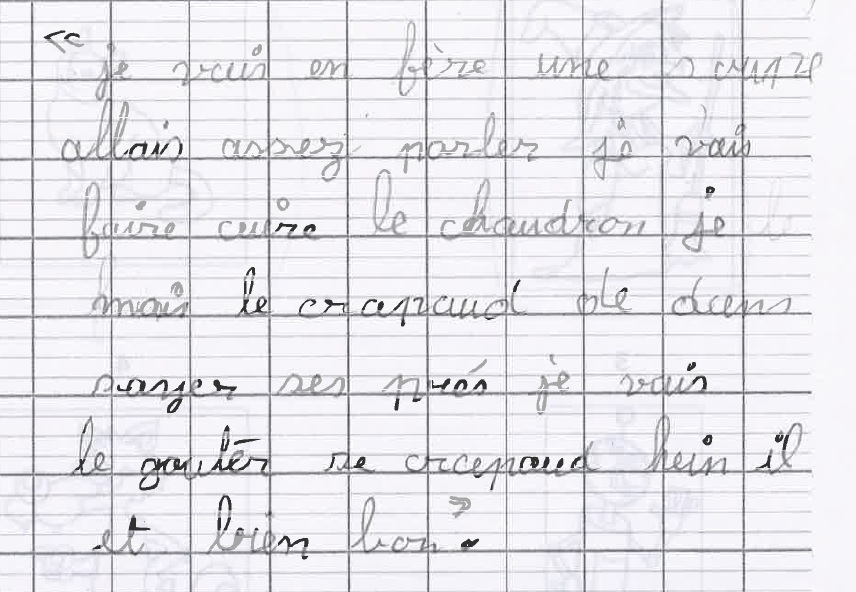 « je vais en fère une soupe
allais assez parler je vais
faire cuire le chaudron je
mais le crapaud de dans
ses prés je vais
le goutér se crapaud hein il
et bien bon ».